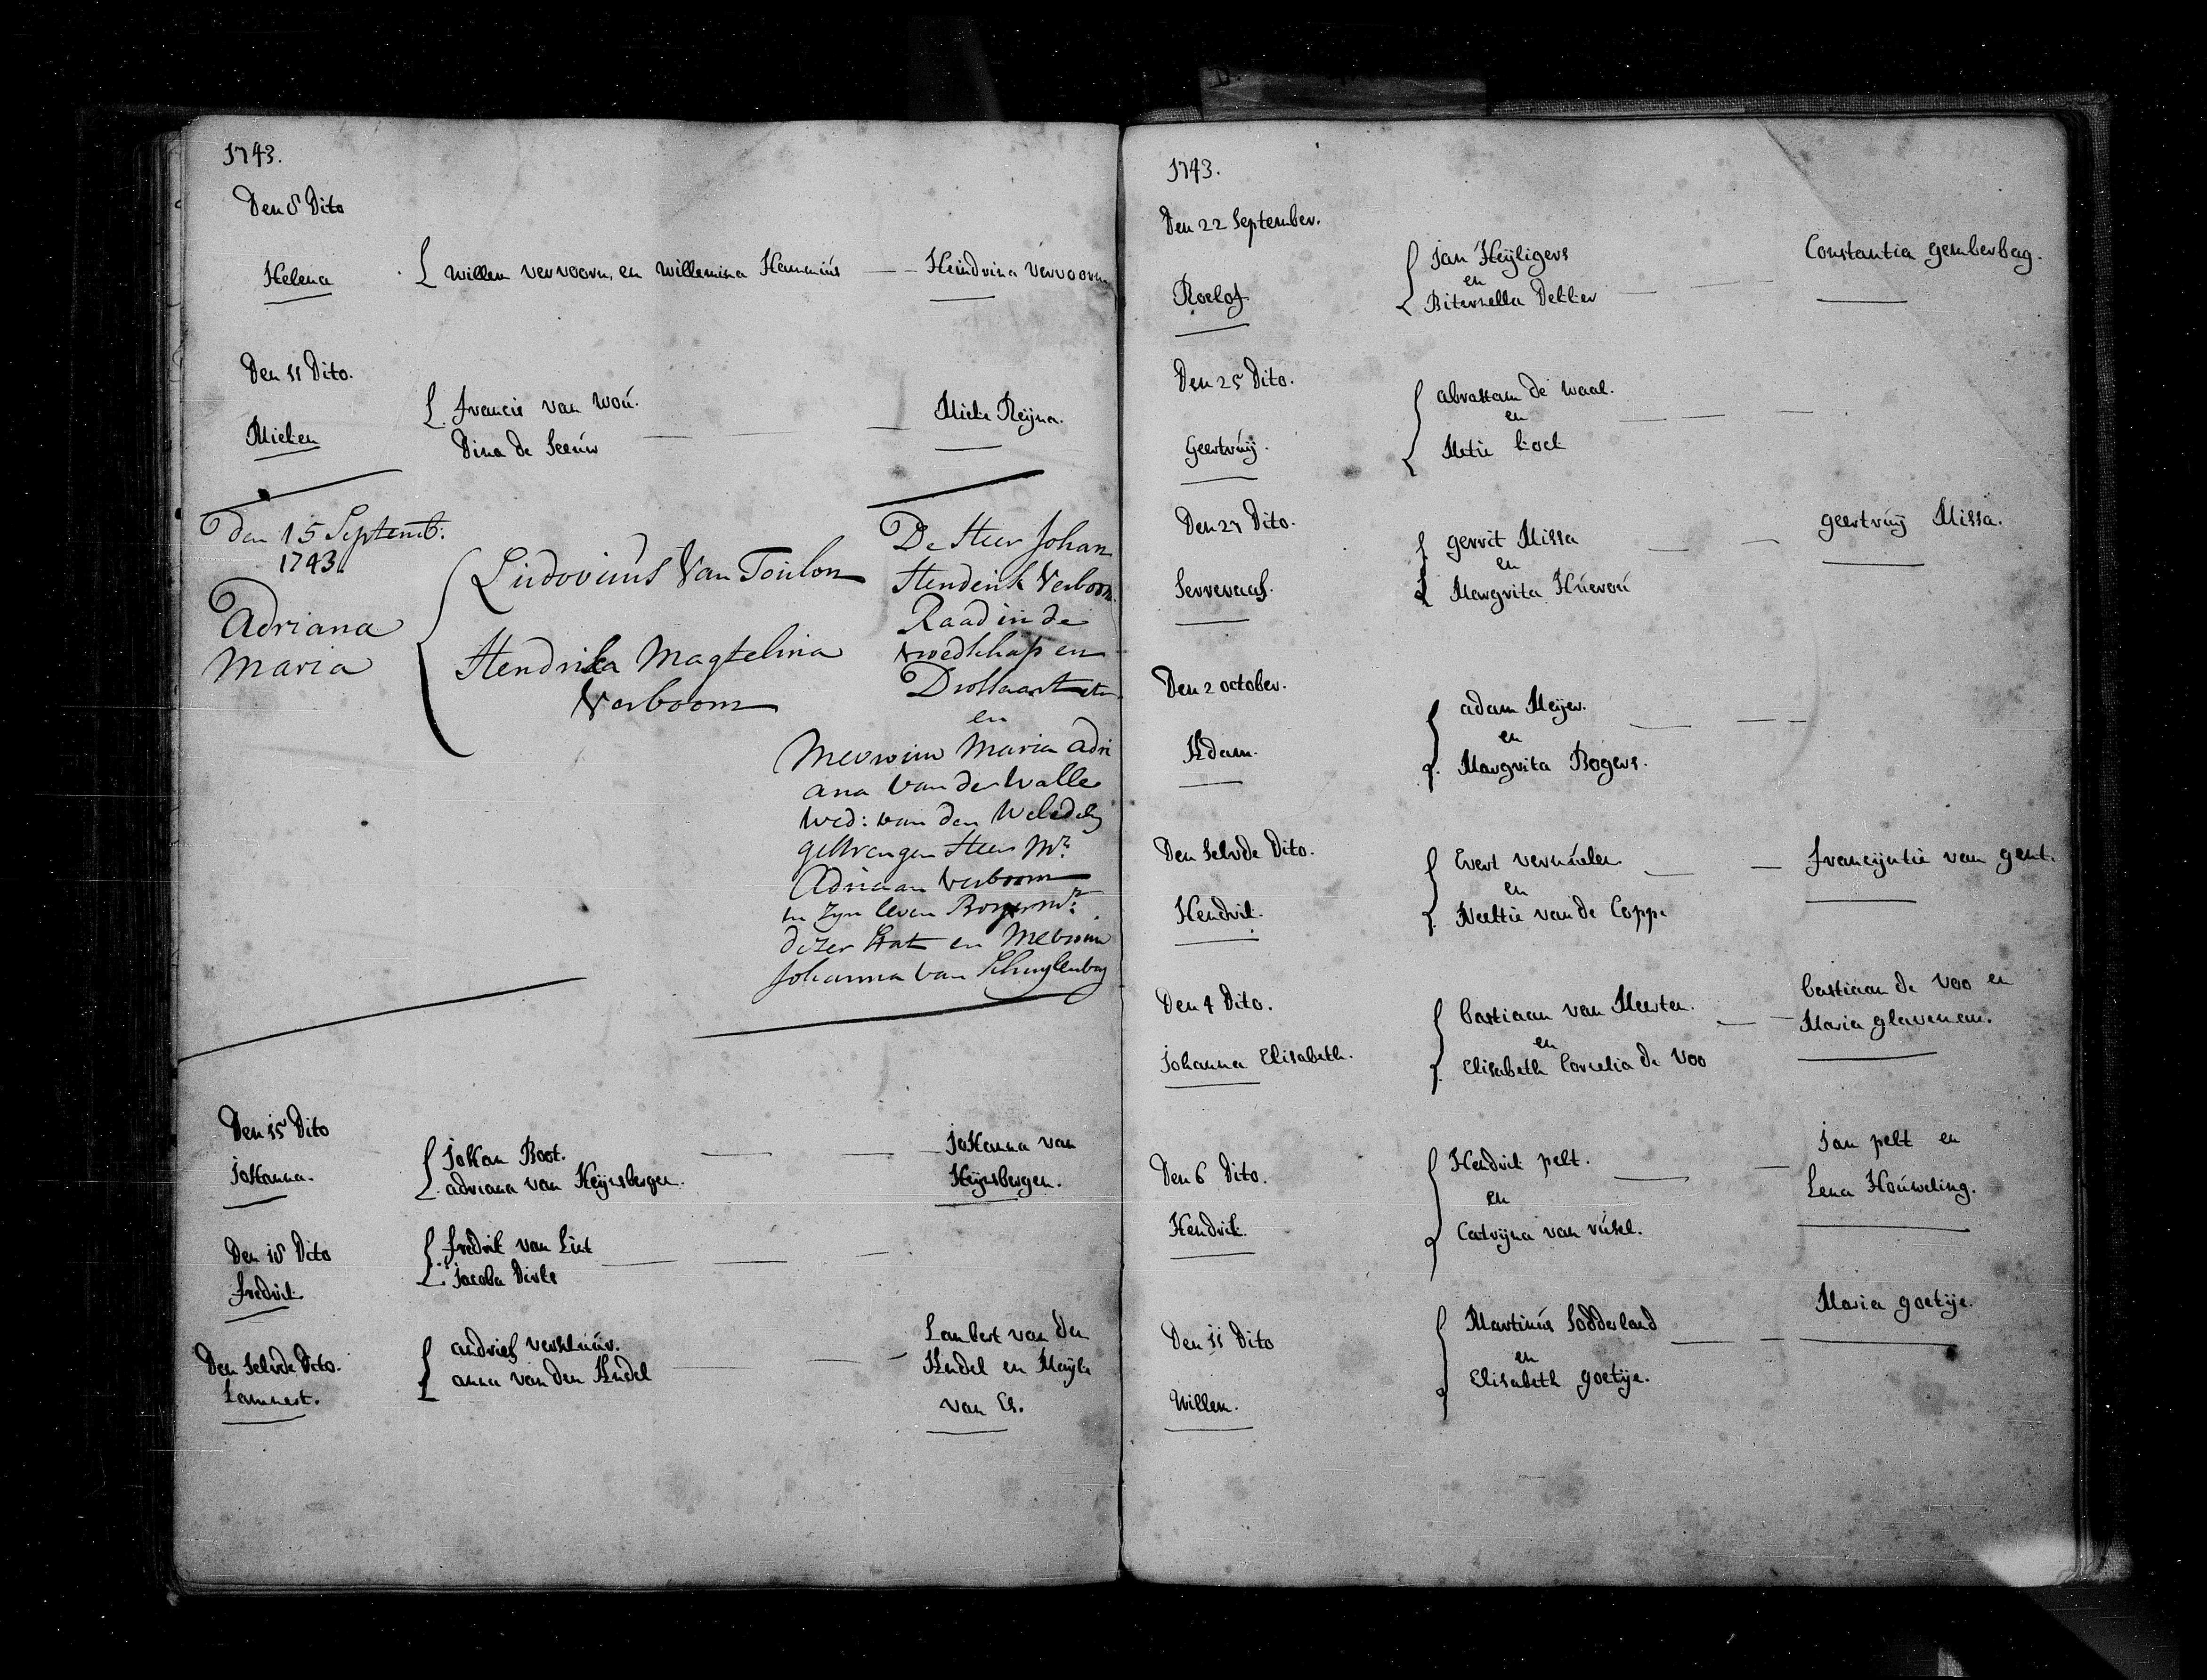 1743.
Den 8 Dito
Helena
Willem vervoorn, en Willemina Hammius
Heindrina vervoorn
Den 11 Dito.
Francis van Wou.
Mieke Reijna.
Mieken
Dina de Leeuw
den 15 Septemb:
1743
Adriana
Maria
Ludovicus Van Toulon
Hendrika Magtelina
Verboom
De Heer Johan
Hendrik Verboom
Raad in de
vroedschap en
Drossaart etc
en
Mevrouw Maria Adri
ana van der Walle
Wed: van den Weledelg
gestrengen Heer Mr.
Adriaan Verboom
in zyn leven Borgermr:
dezer Stat en Mevrouw
Johanna van Schuylenburg
Den 15 Dito
Johanna.
Johan Boot.
adriana van Heijnsbergen.
Johanna van
Heijnsbergen.
Den 18 Dito
fredrik
fredrik van Lint
Jacoba Dirks
Den selvde Dito.
Lammert.
andries versluur.
anna van den Andel
Lambert van den
Andel en Maijke
van Es.
1743.
Den 22 September.
Jan Heijligers
en
Constantia gemberbag.
Roelof
Biternella Dekker
Den 25 Dito.
abraham de waal.
en
Geertruij.
Metie kock
Den 27 Dito.
gerrit Missa
en
geertruij Missa.
Servevaas.
Margrita Huerou
Den 2 october.
adam Meijer.
en
Adam.
Margrita Bogers.
Den selvde Dito.
Evert vermeulen
en
francijntie van gent.
Hendrik.
Neeltie van de Copp.
Den 4 Dito.
bastiaan van Meerten.
en
bastiaan de Voo en
Maria glaveman.
Johanna Elisabeth.
Elisabeth Cornelia de Voo
Den 6 Dito.
Hendrik pelt.
en
Jan pelt en
Lena Houweling.
Hendrik
Catrijna van rusel.
Den 11 Dito
Martinus Sodderland
en
Maria goetije.
Willem.
Elisabeth goetije.